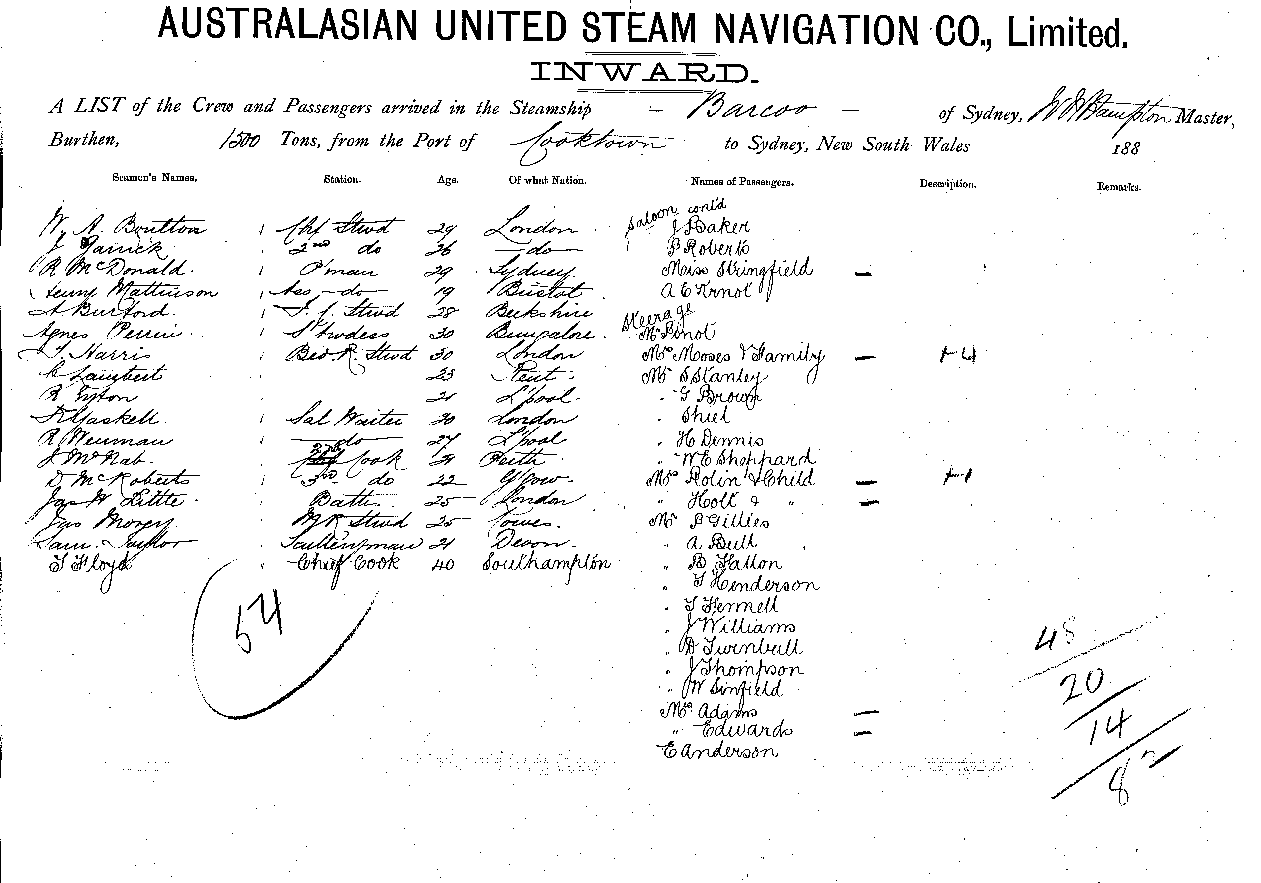 AUSTRALASIAN UNITED STEAM NAVIGATION CO., Limited.
INWARD.
A LIST of the Crew and Passengers arrived in the Steamship – Barcoo – of Sydney, Hampton Master,
Burthen, 1500 Tons, from the Port of Cooktown to Sydney, New South Wales 188
Seamen's Names. Station. Age. Of what Nation. Names of Passengers. Description. Remarks.
Saloon cont'd
W. A. Boulton Chf Stwd 29 London J Baker
J 2nd do 26 – do – P Roberts
R McDonald P'man 29 Sydney Miss Stringfield –
Henry Mattinson Ass – do – 19 Bristol A E Arnot
A Burford Stwd 28 Berkshire
Steerage
Agnes Perrin St'wdess 30 Bungalore Mr Pinot
Harris Bed R. Stwd 30 London Mrs Moses & Family – + 4
C Lambert 23 Kent Mr S Stanley
R 21 L'pool " G Brown
Gaskell Sal Waiter 30 London " Shiel
R Weuman – do – 27 L'pool " H Dennis
J McNab 2nd Cook 21 Perth " W E Sheppard
D McRoberts 3rd do 22 G'gow Mrs Rolin & Child – + 1
Jas H Little 25 London " Holt & " –
Jas Morey M R Stwd 25 Cowes Mr P Gillies
Sam. Taylor Sculleryman 21 Devon " A Bull
T Floyd Chief Cook 40 Southampton " B Fallon
" T Henderson
" T Fermell
" J Williams
" D Turnbull
" J Thompson
" W Sinfield
Mrs Adams –
" Edwards –
E Anderson
54
48
20
14
82